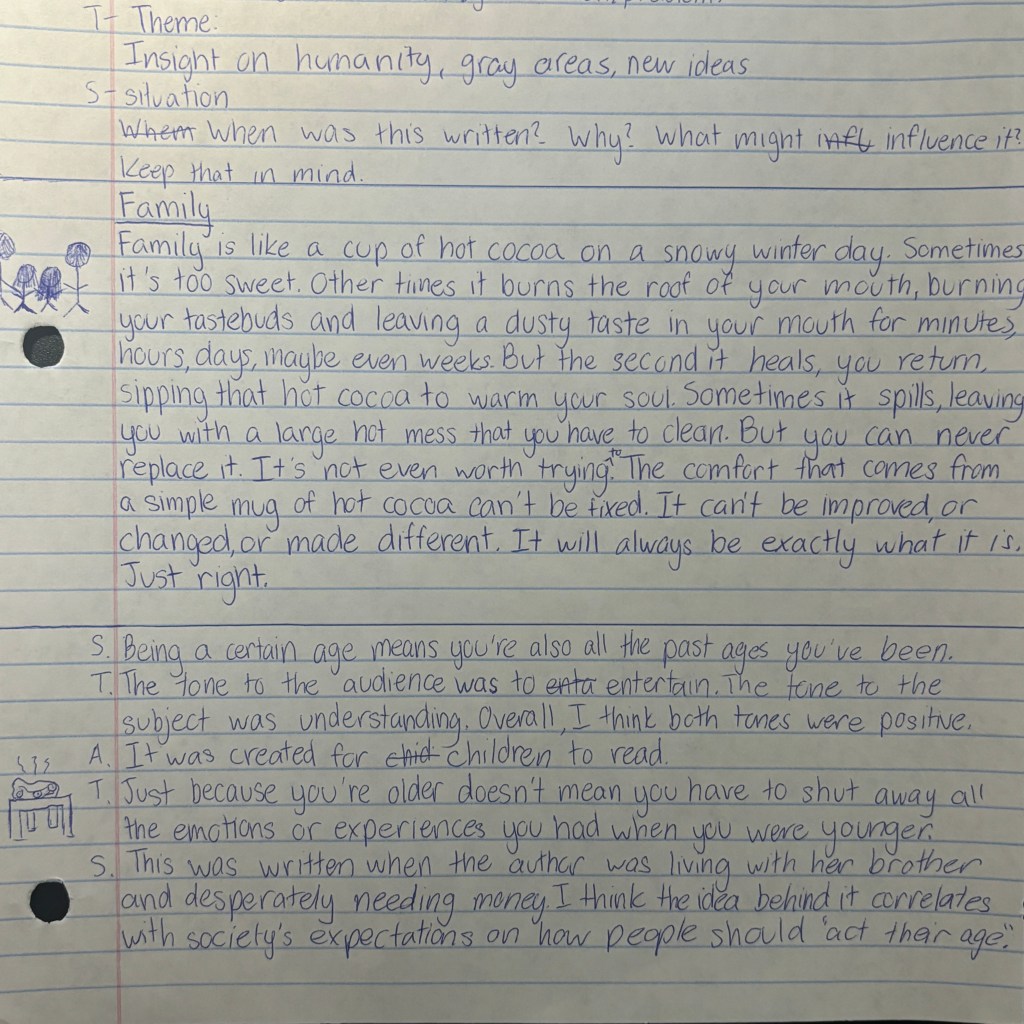 T- Theme:
Insight on humanity, gray areas, new ideas
S- situation
When When was this written? Why? What might infl influence it?
Keep that in mind.
Family
Family is like a cup of hot cocoa on a snowy winter day. Sometimes
it's too sweet. Other times it burns the roof of your mouth, burning
your tastebuds and leaving a dusty taste in your mouth for minutes,
hours, days, maybe even weeks. But the second it heals, you return,
sipping that hot cocoa to warm your soul. Sometimes it spills, leaving
you with a large hot mess that you have to clean. But you can never
replace it. It's not even worth trying to. The comfort that comes from
a simple mug of hot cocoa can't be fixed. It can't be improved, or
changed, or made different. It will always be exactly what it is.
Just right.
S. Being a certain age means you're also all the past ages you've been.
T. The tone to the audience was to enta entertain. The tone to the
subject was understanding. Overall, I think both tones were positive.
A. It was created for chid children to read.
T. Just because you're older doesn't mean you have to shut away all
the emotions or experiences you had when you were younger.
S. This was written when the author was living with her brother
and desperately needing money. I think the idea behind it correlates
with society's expectations on how people should "act their age".